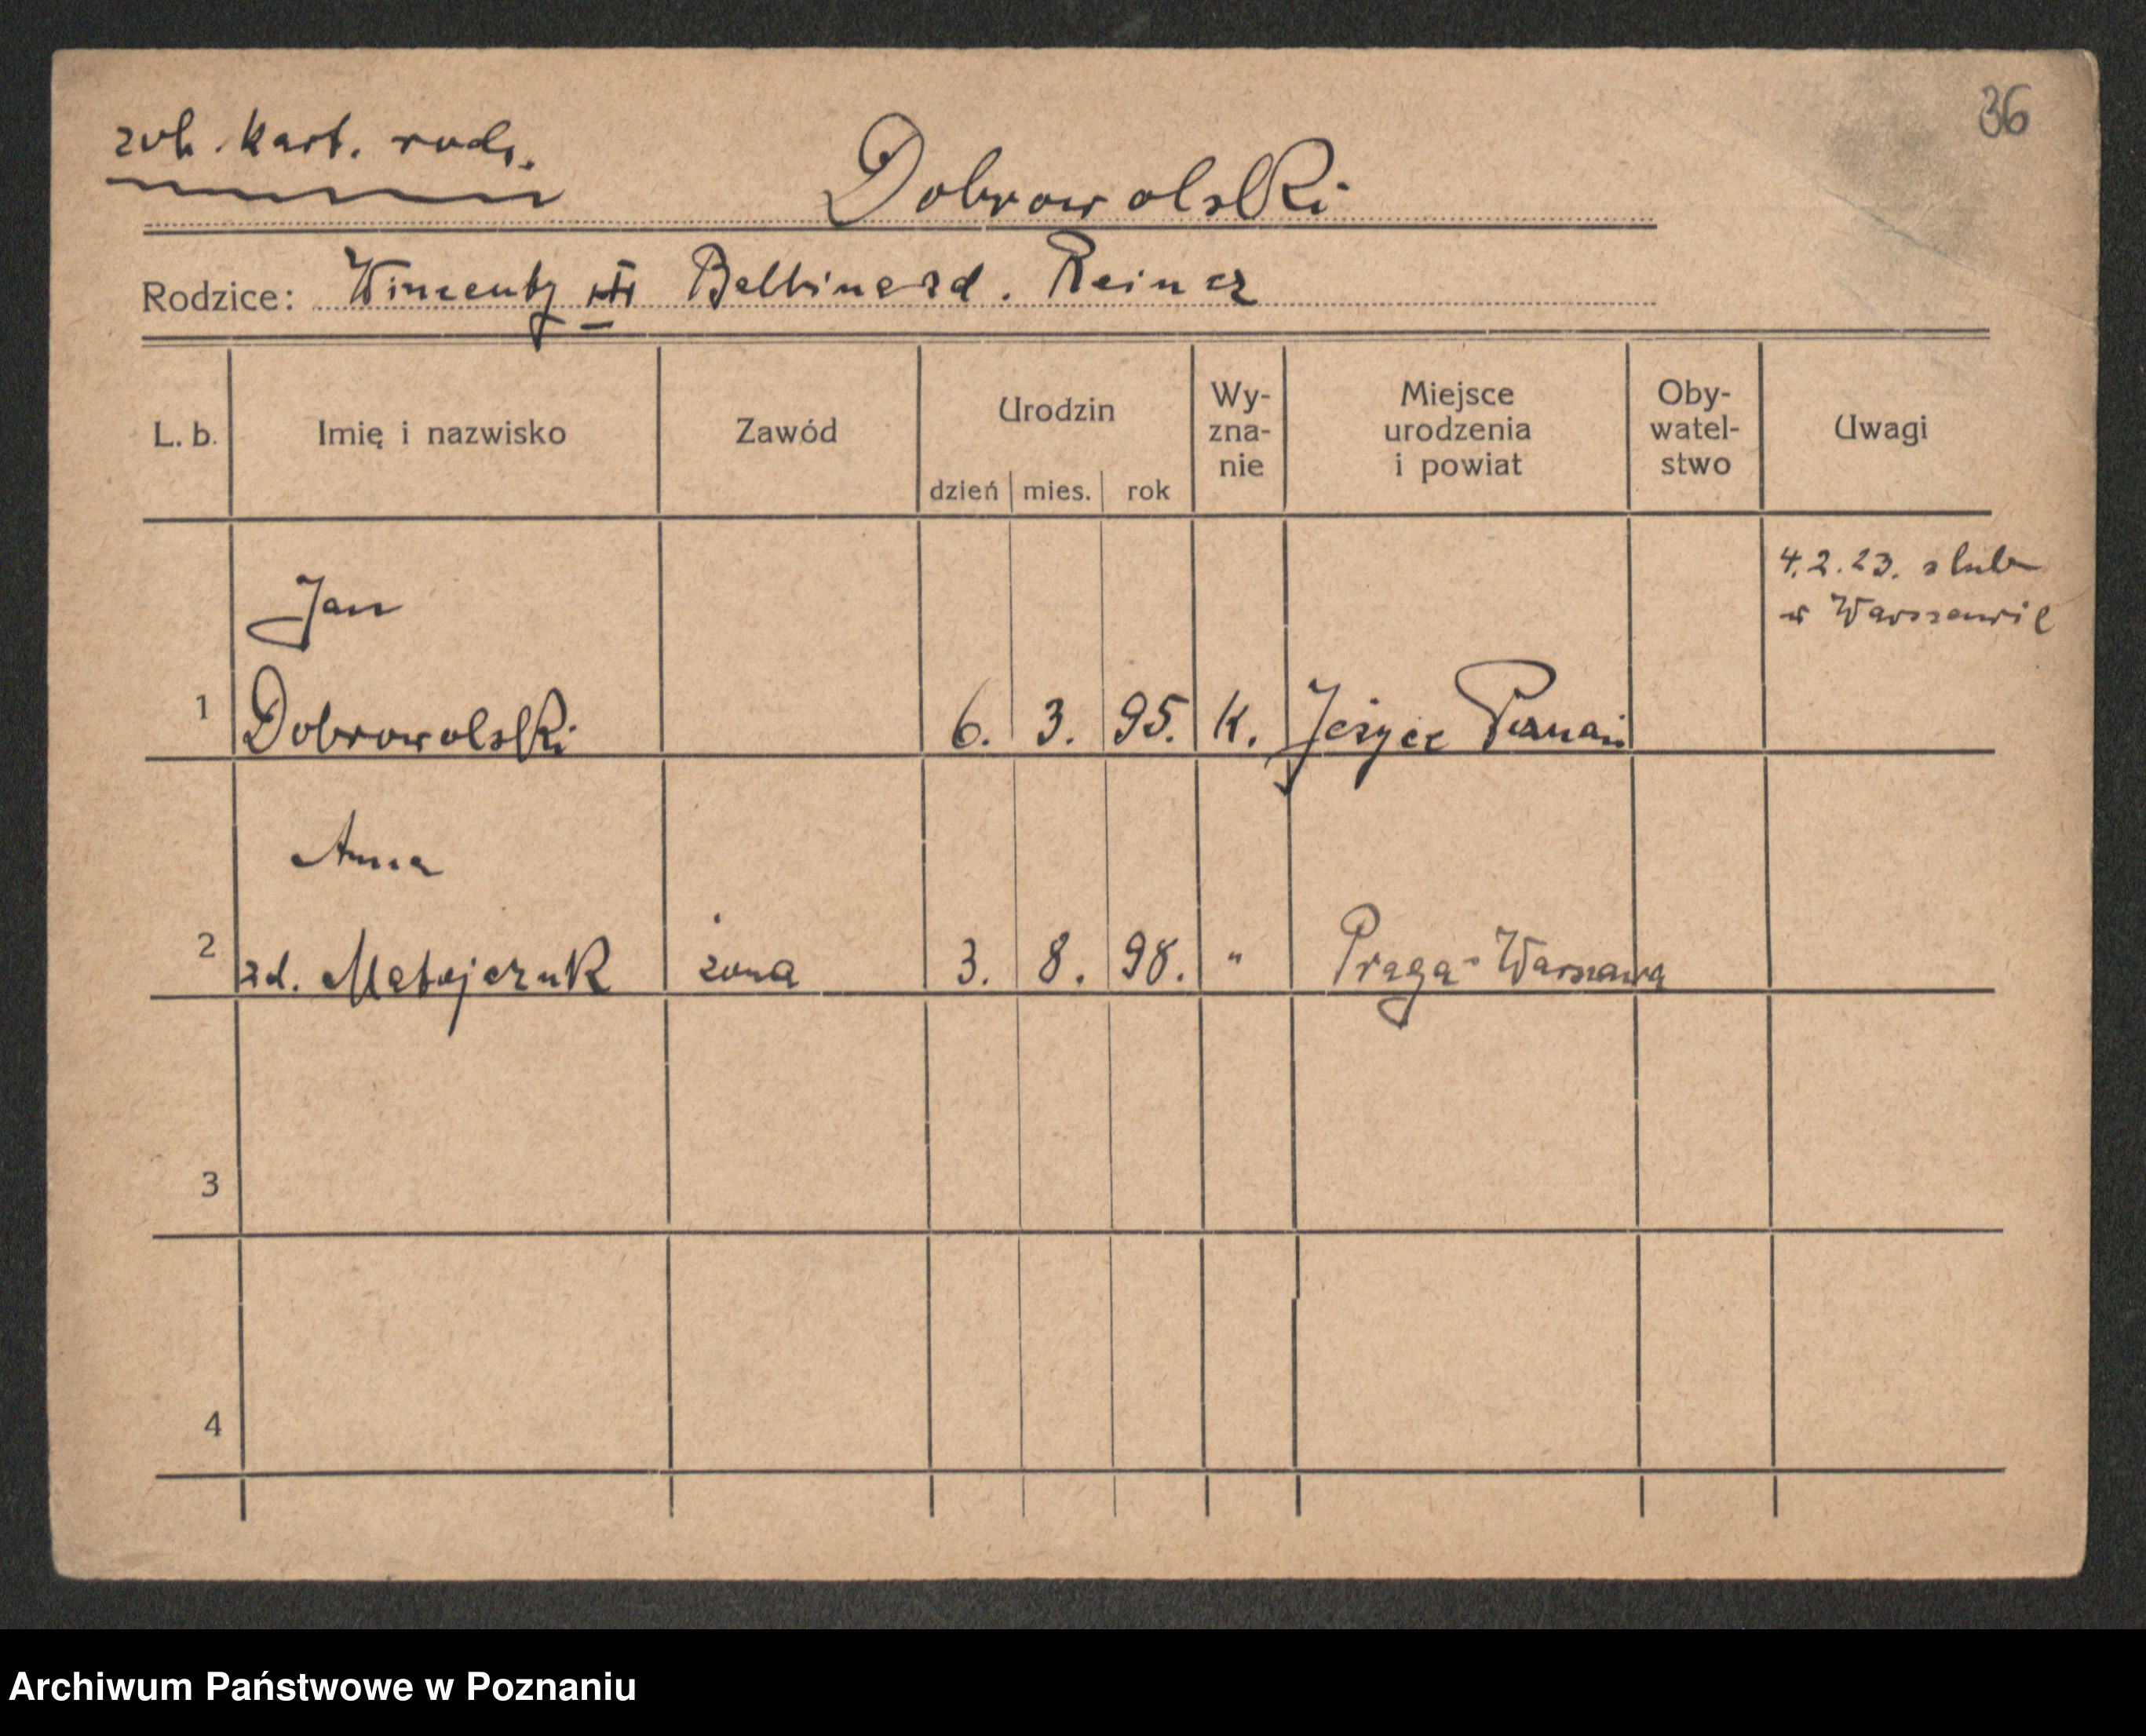 36
zob. kart. rodz.
Dobrowolski
Rodzice: Wincenty Balbina zd. Reinez
L. b. Imię i nazwisko Zawód Urodzin dzień mies. rok Wy-zna-nie Miejsce urodzenia i powiat Oby-watel-stwo Uwagi
4.2.23. slub
w Warszawie
Jan
1 Dobrowolski 6. 3. 95. K. Jeżyce Poznań
Anna
2 zd. Matejczuk żona 3. 8. 98. " Praga-Warszawa
3
4
Archiwum Państwowe w Poznaniu